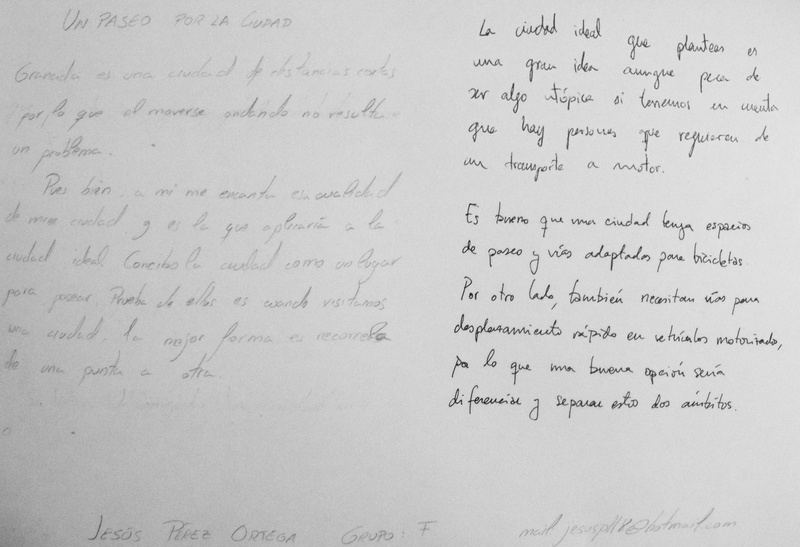 UN PASEO POR LA CIUDAD
Granada es una ciudad de distancias cortas
por lo que el moverse andando no resulta
un problema.
Pues bien, a mi me encanta esa cualidad
de mi ciudad y es la que aplicaría a la
ciudad ideal. Concibo la ciudad como un lugar
para pasear. Prueba de ello es cuando visitamos
una ciudad, la mejor forma es recorrerla
de una punta a otra.
La ciudad ideal que planteas es
una gran idea aunque peca de
ser algo utópica si tenemos en cuenta
que hay personas que requieren de
un transporte a motor.
Es bueno que una ciudad tenga espacios
de paseo y vías adaptadas para bicicletas.
Por otro lado, también necesitan vías para
desplazamiento rápido en vehículos motorizado,
por lo que una buena opción sería
diferenciar y separar estos dos ámbitos.
JESÚS PÉREZ ORTEGA GRUPO: F
mail